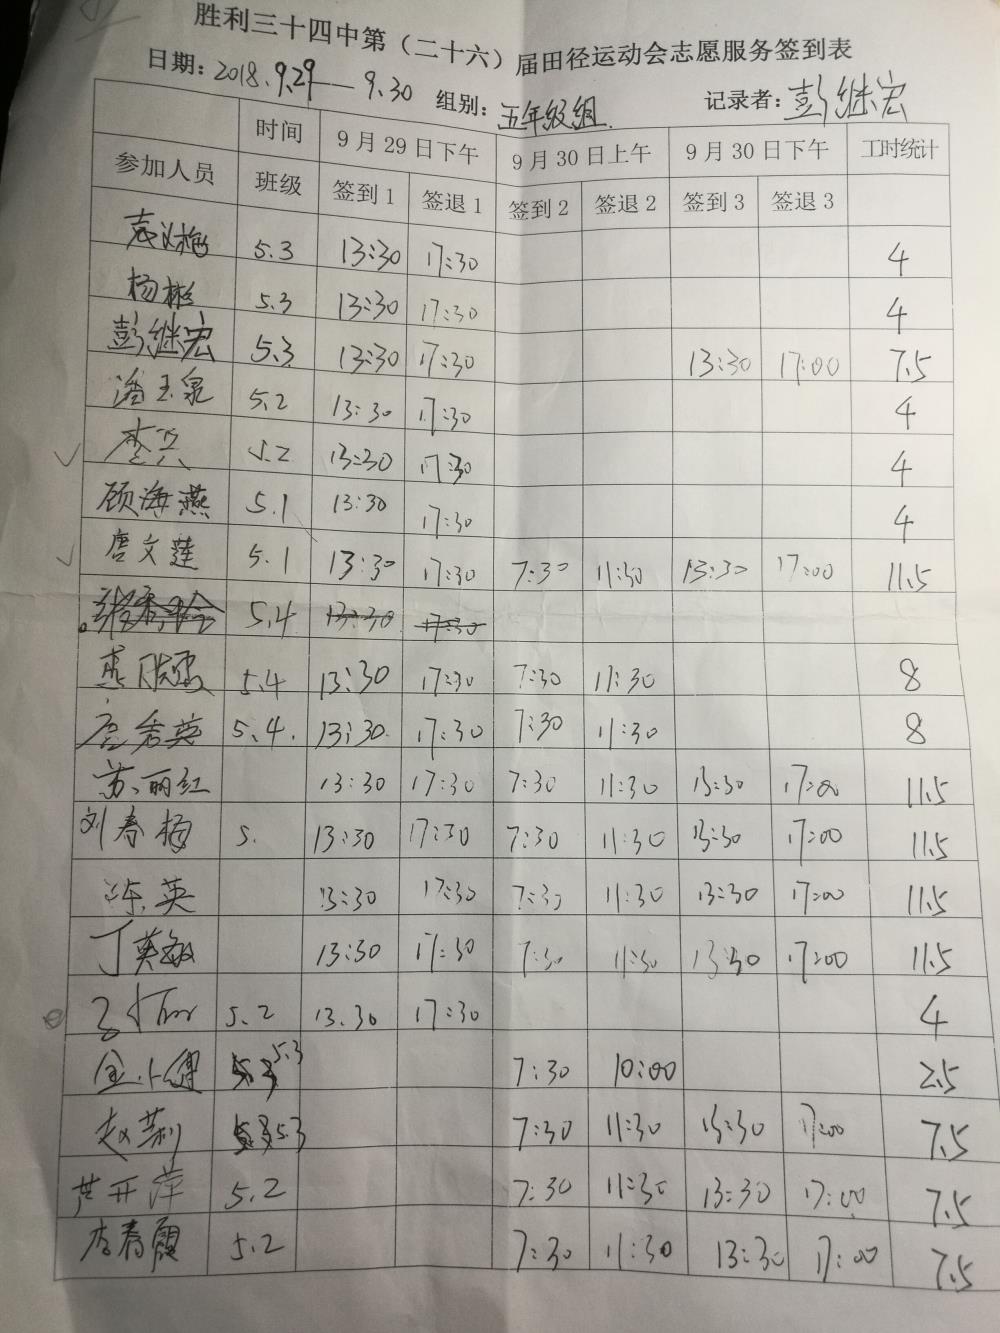 胜利三十四中第（二十六）届田径运动会志愿服务签到表
日期：2018.9.29—9.30 组别：五年级组. 记录者：彭继宏
时间 9月29日下午 9月30日上午 9月30日下午 工时统计
参加人员 班级 签到1 签退1 签到2 签退2 签到3 签退3
袁义梅 5.3 13:30 17:30 4
杨彬 5.3 13:30 17:30 4
彭继宏 5.3 13:30 17:30 13:30 17:00 7.5
潘玉泉 5.2 13:30 17:30 4
李兴 5.2 13:30 17:30 4
顾海燕 5.1 13:30 17:30 4
唐文莲 5.1 13:30 17:30 7:30 11:30 13:30 17:00 11.5
5.4 13:30 17:30
5.4 13:30 17:30 7:30 11:30 8
唐秀英 5.4. 13:30 17:30 7:30 11:30 8
苏丽红 13:30 17:30 7:30 11:30 13:30 17:00 11.5
刘春梅 5. 13:30 17:30 7:30 11:30 13:30 17:00 11.5
陈英 13:30 17:30 7:30 11:30 13:30 17:00 11.5
丁英敏 13:30 17:30 7:30 11:30 13:30 17:00 11.5
5.2 13.30 17:30 4
5.3 7:30 10:00 2.5
赵莉 5.3 7:30 11:30 13:30 17:00 7.5
芦开萍 5.2 7:30 11:30 13:30 17:00 7.5
李春霞 5.2 7:30 11:30 13:30 17:00 7.5